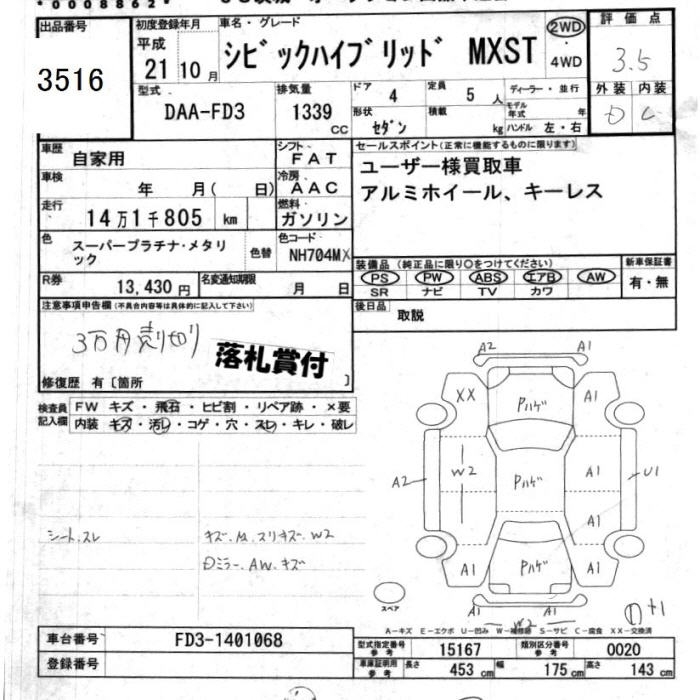 *0008862*
出品番号
3516
初度登録年月
平成
21 10月
車名・グレード
シビックハイブリッド MXST
2WD
・
4WD
評価点
3.5
外装 内装
D C
型式
DAA-FD3
排気量
1339
CC
ドア
4
定員
5 人
ディーラー・並行
モデル年式 年
形状
セダン
積載
kg
ハンドル 左・右
車歴
自家用
シフト
FAT
車検
年 月( 日)
冷房
AAC
走行
14万1千805 km
燃料
ガソリン
色
スーパープラチナ・メタリック
色替
色コード
NH704MX
R券
13,430 円
名変通知期限
月 日
セールスポイント(正常に機能するものに限ります)
ユーザー様買取車
アルミホイール、キーレス
装備品(純正品に限り○をつけてください)
新車保証書
PS PW ABS エアB AW
SR ナビ TV カワ
有・無
後日品
取説
注意事項申告欄(不具合内容等は具体的に記入して下さい)
3万円売切り
落札賞付
修復歴 有〔箇所 〕
検査員記入欄
FW キズ・飛石・ヒビ割・リペア跡・×要
内装 キズ・汚レ・コゲ・穴・スレ・キレ・破レ
シート、スレ
Dミラー、AW、キズ
A2 A1
XX Pハゲ A1
A2 W2 Pハゲ A1 U1
A1
A1 Pハゲ A1
A1 A1
W2
スペア
A-キズ E-エクボ U-凹み W-補修跡 S-サビ C-腐食 XX-交換済
車台番号
FD3-1401068
登録番号
型式指定番号
参考
15167
類別区分番号
参考
0020
車庫証明用
参考
長さ 453 cm
幅 175 cm
高さ 143 cm